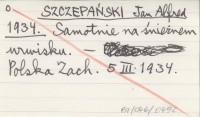 SZCZEPAŃSKI Jan Alfred
1934. Samotnie na śnieżnem
urwisku. –
Polska Zach. 5 III 1934.